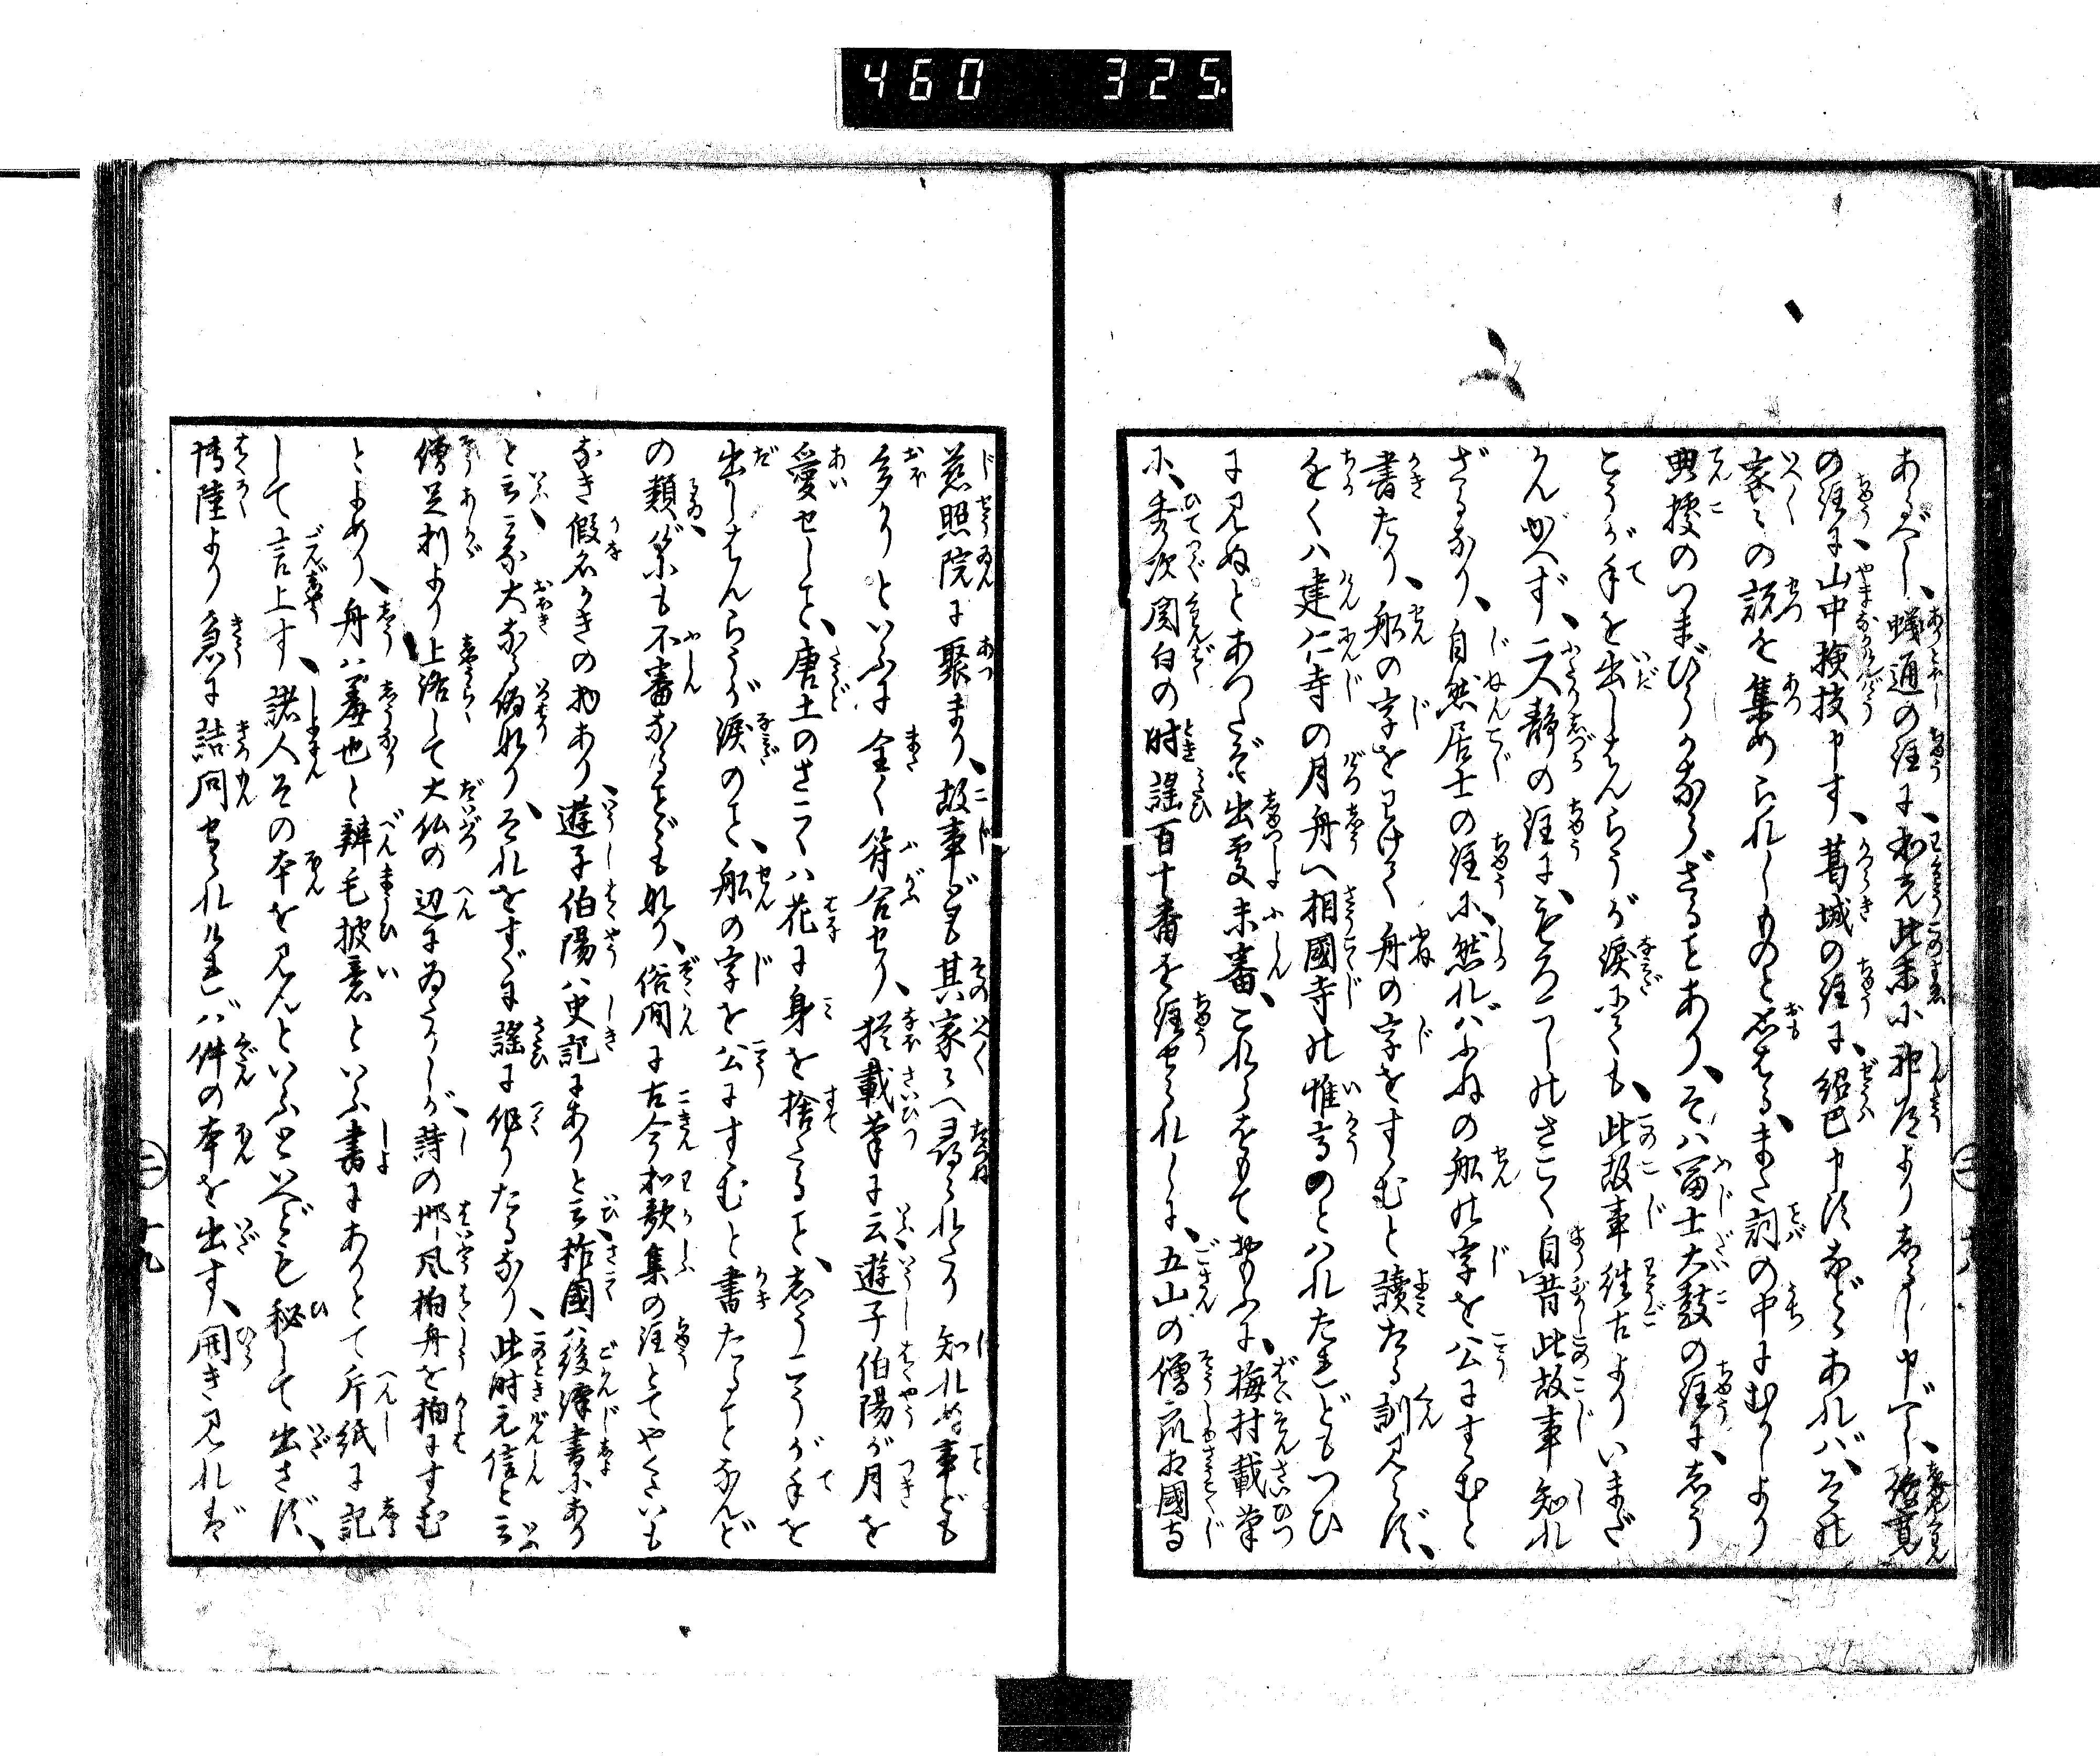 460 325
あるべし、蟻通の注に、和光此末に神道よりしるし申べし、後寛
の注に、山中検技申す、葛城の注に、紹巴申すなどゝあれバ、その
家〻の説を集められしものと思はる、また詞の中にむかしより
典拠のいまびらかならざることあり、そハ富士大鼓の注に、しう
こうが手を出しはんらうが涙にても、此故事往古よりいまだ
かんがへず、二人静の注に、もろこしのさこく自昔此故事知れ
ざるなり、自然居士の注に、然れバふねの船の字を公にすゝむと
書たり、船の字をわけて舟の字をすゝむと読たる訓見えず、
ちかくハ建仁寺の月舟へ相国寺の惟高のとハれたれどもつひ
に見ぬとあつたぞ出処未審、これらをもて考ふに、梅村載筆
に、秀次関白の時謡百十番を注せられしに、五山の僧衆相国寺
慈照院に聚まり、故事ども其家〻へ尋られたり知れぬ事ども
多かりといふに全く符合せり、猶載筆に云遊子伯陽が月を
愛せしこと、唐土のさこくハ花に身を捨たること、しうこうが手を
出しはんらうが涙のこと、船の字を公にすゝむと書たることなんど
の類、に不審なることども也、俗間に古今和歌集の注とてやくたいも
なき仮名かきの物あり、遊子伯陽ハ史記にありと云、柞国ハ後漢書にあり
と云、大なる偽也、それをすぐに謡に作りたるなり、此時元信と云
僧足利より上洛して大仏の辺にゐたりしが、詩の邶風柏舟を舶にすゝむ
とよめり、舟ハ羞也と辨毛披意といふ書にありとて片紙に記
して言上す、諸人その本を見んといふといへども秘して出さず、
博陸より急に詰問せられけれバ件の本を出す、開き見れば